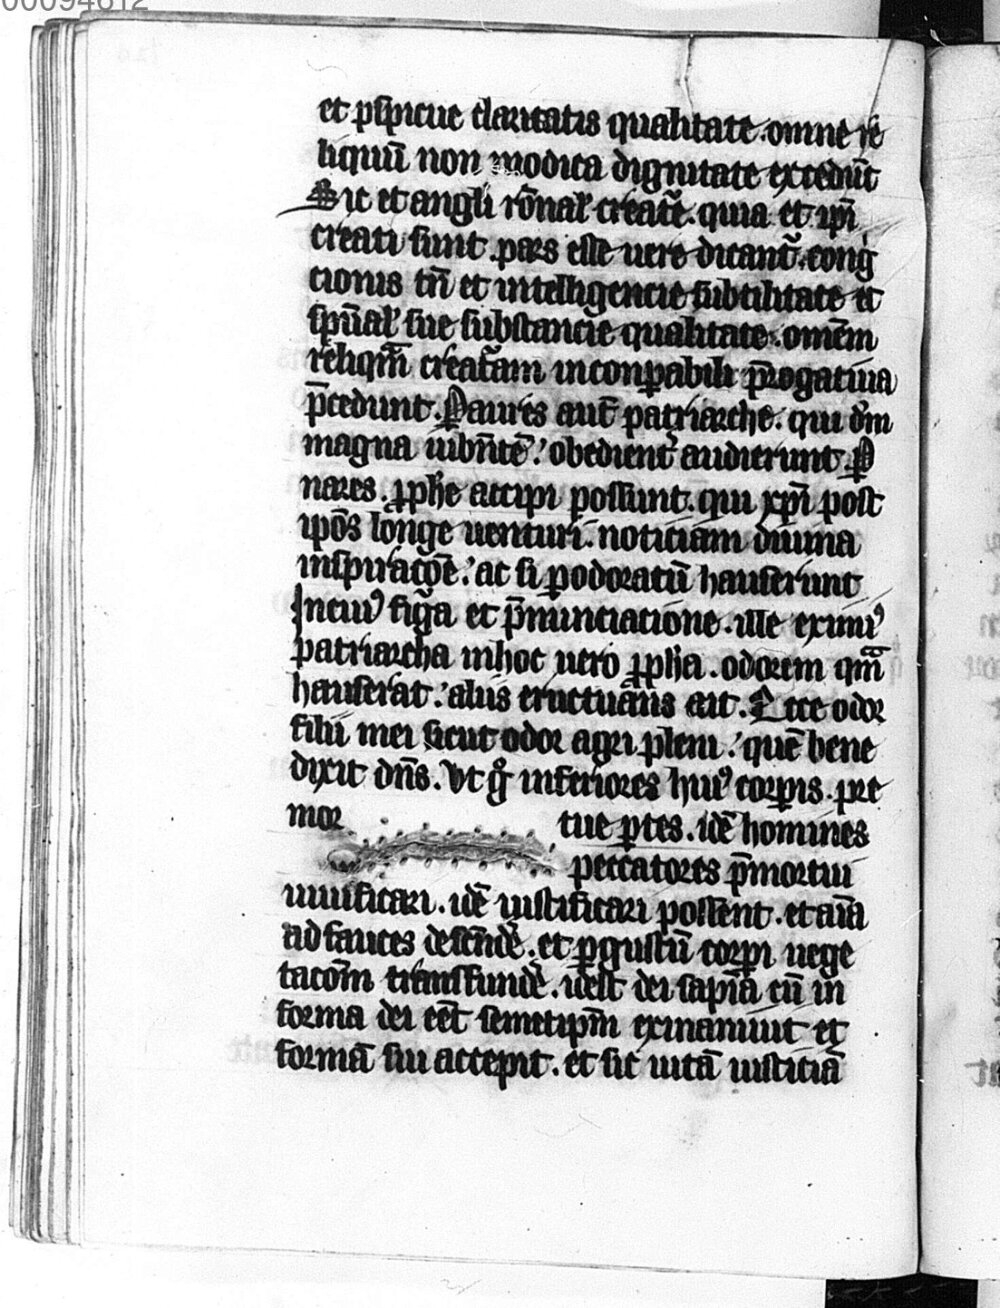 00094612
et ꝑspicue claritatis qualitate. omne re
liquū non modica dignitate excedūt
Sic et angli rōnał creatẽ. quia et ip̄i
creati sunt. pars esse uere dicant᷑. cong
cionis tn̄ et intelligencie subtilitate et
sp̄uał sue substancie qualitate. omēm
reliqm̄ creat᷑am inconꝑabili p̄rogatiua
p̄cedunt. Paures aut̄ patriarche. qui dm̄
magna iubn̄tē. obedient᷑ audierunt. P
nares. ꝓph̄e accipi possunt. qui xp̄i post
ip̄os longe uenturi. noticiam diuina
inspiracōe. ac si ꝑ odoratū hauserunt
In cui᷒ figᷓa et p̄nunciacione. ille eximi᷒
patriarcha in hoc uero ꝓph̄a. odorem qm̄
hauserat. aliis eructuans ait. Ecce odor
filii mei sicut odor agri pleni. quē bene
dixit dn̄s. Vt gͦ inferiores hui᷒ corꝑis. pre
mor tue ꝑtes. idē homines
peccatores p̄mortui
uiuificari. idē iustificari possent. et aīa
ad fauces descēdē. et ꝑ gustū corꝑi uege
tacom̄ transfundē. idest dei sapīa cū in
forma dei eēt semetip̄m exinaniuit et
formā sui accepit. et sic uitā iusticiā